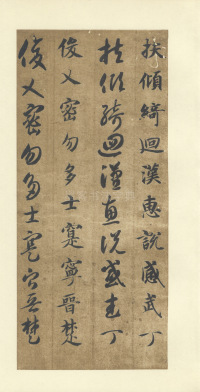 扶傾綺迴漢惠說感武丁
扶傾綺迴漢惠說感武丁
俊乂密勿多士寔寧晉楚
俊乂密勿多士寔寧晉楚